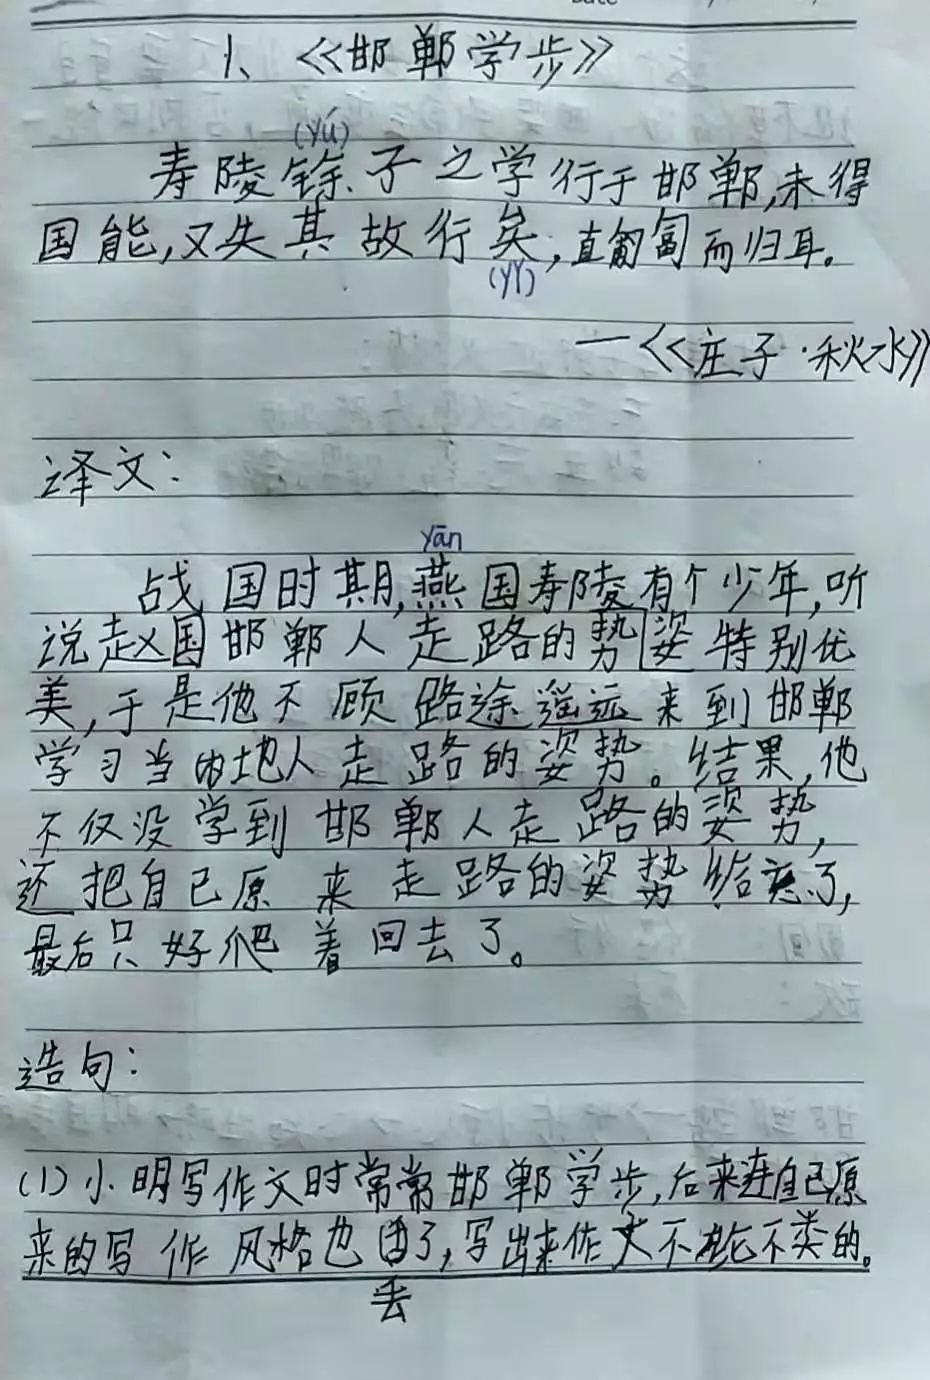 1、《邯郸学步》
(yú)
寿陵馀子之学行于邯郸,未得
国能,又失其故行矣,直匍匐而归耳。
(yǐ)
—《庄子·秋水》
译文:
yān
战国时期,燕国寿陵有个少年,听
说赵国邯郸人走路的势姿特别优
美,于是他不顾路途遥远来到邯郸
学习当地人走路的姿势。结果,他
不仅没学到邯郸人走路的姿势,
还把自己原来走路的姿势给忘了,
最后只好爬着回去了。
造句:
(1)小明写作文时常常邯郸学步,后来连自己原
来的写作风格也了,写出来作文不伦不类的。
丢